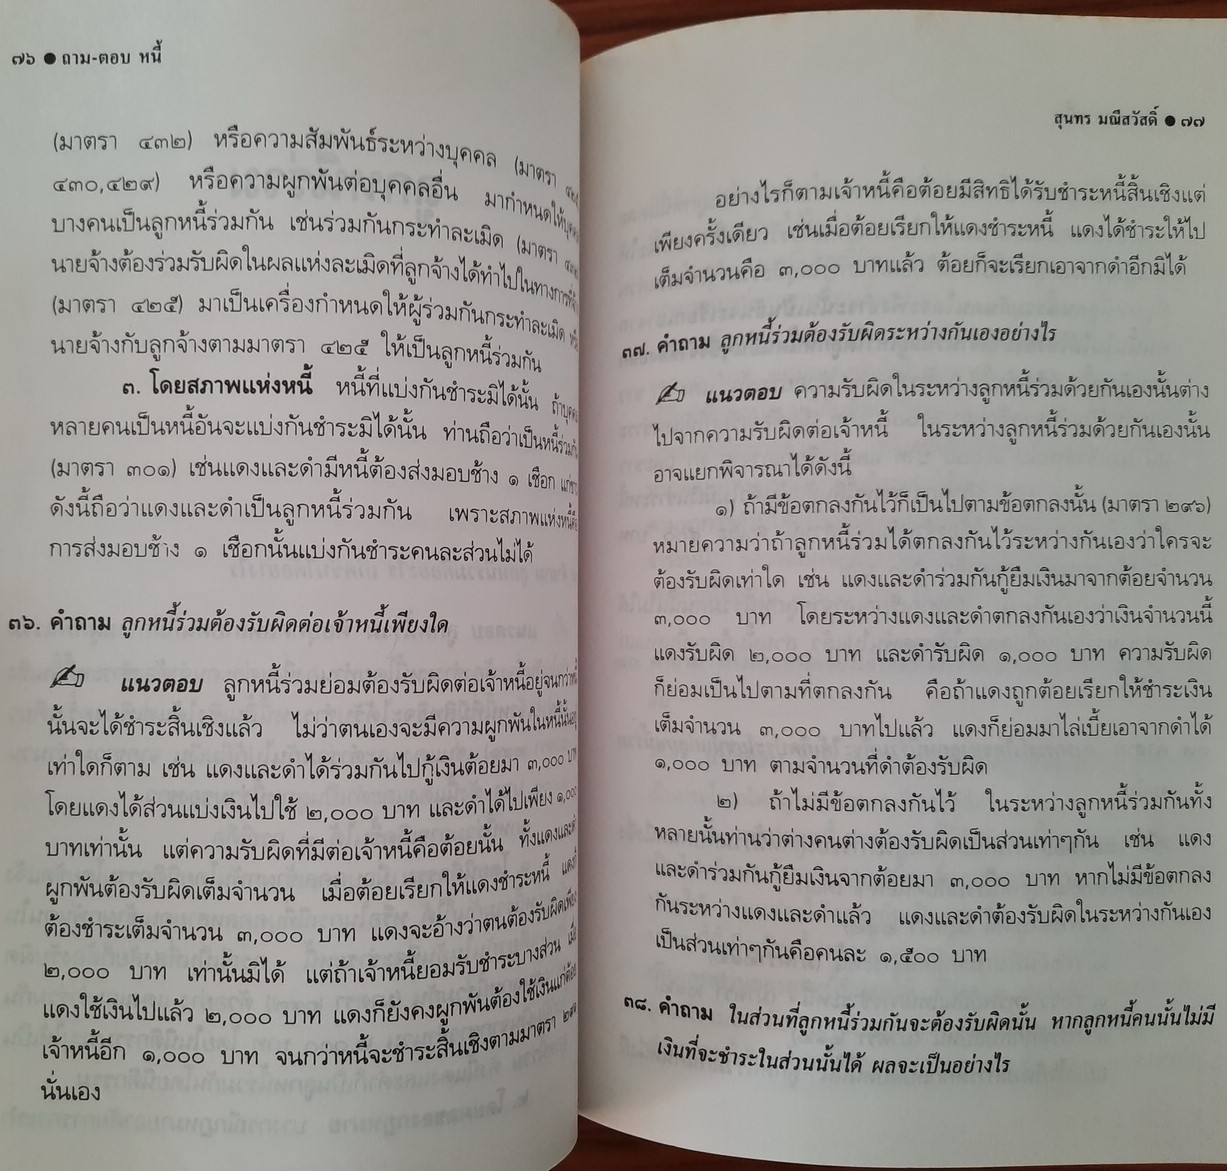 ๗๖ ● ถาม-ตอบ หนี้
(มาตรา ๔๓๒) หรือความสัมพันธ์ระหว่างบุคคล (มาตรา ๔๒๕,
๔๓๐,๔๒๙) หรือความผูกพันต่อบุคคลอื่น มากำหนดให้บุคคล
บางคนเป็นลูกหนี้ร่วมกัน เช่นร่วมกันกระทำละเมิด (มาตรา ๔๓๒
นายจ้างต้องร่วมรับผิดในผลแห่งละเมิดที่ลูกจ้างได้ทำไปในทางการที่จ้าง
(มาตรา ๔๒๕) มาเป็นเครื่องกำหนดให้ผู้ร่วมกันกระทำละเมิด หรือ
นายจ้างกับลูกจ้างตามมาตรา ๔๒๕ ให้เป็นลูกหนี้ร่วมกัน
๓. โดยสภาพแห่งหนี้ หนี้ที่แบ่งกันชำระมิได้นั้น ถ้าบุคคล
หลายคนเป็นหนี้อันจะแบ่งกันชำระมิได้นั้น ท่านถือว่าเป็นหนี้ร่วมกัน
(มาตรา ๓๐๑) เช่นแดงและดำมีหนี้ต้องส่งมอบช้าง ๑ เชือก แก่ขาว
ดังนี้ถือว่าแดงและดำเป็นลูกหนี้ร่วมกัน เพราะสภาพแห่งหนี้คือ
การส่งมอบช้าง ๑ เชือกนั้นแบ่งกันชำระคนละส่วนไม่ได้
๓๖. คำถาม ลูกหนี้ร่วมต้องรับผิดต่อเจ้าหนี้เพียงใด
แนวตอบ ลูกหนี้ร่วมย่อมต้องรับผิดต่อเจ้าหนี้อยู่จนกว่าหนี้
นั้นจะได้ชำระสิ้นเชิงแล้ว ไม่ว่าตนเองจะมีความผูกพันในหนี้นั้นอยู่
เท่าใดก็ตาม เช่น แดงและดำได้ร่วมกันไปกู้เงินต้อยมา ๓,๐๐๐ บาท
โดยแดงได้ส่วนแบ่งเงินไปใช้ ๒,๐๐๐ บาท และดำได้ไปเพียง ๑,๐๐๐
บาทเท่านั้น แต่ความรับผิดที่มีต่อเจ้าหนี้คือต้อยนั้น ทั้งแดงและดำ
ผูกพันต้องรับผิดเต็มจำนวน เมื่อต้อยเรียกให้แดงชำระหนี้ แดงก็
ต้องชำระเต็มจำนวน ๓,๐๐๐ บาท แดงจะอ้างว่าตนต้องรับผิดเพียง
๒,๐๐๐ บาท เท่านั้นมิได้ แต่ถ้าเจ้าหนี้ยอมรับชำระบางส่วน เมื่อ
แดงใช้เงินไปแล้ว ๒,๐๐๐ บาท แดงก็ยังคงผูกพันต้องใช้เงินแก่ต้อย
เจ้าหนี้อีก ๑,๐๐๐ บาท จนกว่าหนี้จะชำระสิ้นเชิงตามมาตรา ๒๙๑
นั่นเอง
สุนทร มณีสวัสดิ์ ● ๗๗
อย่างไรก็ตามเจ้าหนี้คือต้อยมีสิทธิได้รับชำระหนี้สิ้นเชิงแต่
เพียงครั้งเดียว เช่นเมื่อต้อยเรียกให้แดงชำระหนี้ แดงได้ชำระให้ไป
เต็มจำนวนคือ ๓,๐๐๐ บาทแล้ว ต้อยก็จะเรียกเอาจากดำอีกมิได้
๓๗. คำถาม ลูกหนี้ร่วมต้องรับผิดระหว่างกันเองอย่างไร
แนวตอบ ความรับผิดในระหว่างลูกหนี้ร่วมด้วยกันเองนั้นต่าง
ไปจากความรับผิดต่อเจ้าหนี้ ในระหว่างลูกหนี้ร่วมด้วยกันเองนั้น
อาจแยกพิจารณาได้ดังนี้
๑) ถ้ามีข้อตกลงกันไว้ก็เป็นไปตามข้อตกลงนั้น (มาตรา ๒๙๖)
หมายความว่าถ้าลูกหนี้ร่วมได้ตกลงกันไว้ระหว่างกันเองว่าใครจะ
ต้องรับผิดเท่าใด เช่น แดงและดำร่วมกันกู้ยืมเงินมาจากต้อยจำนวน
๓,๐๐๐ บาท โดยระหว่างแดงและดำตกลงกันเองว่าเงินจำนวนนี้
แดงรับผิด ๒,๐๐๐ บาท และดำรับผิด ๑,๐๐๐ บาท ความรับผิด
ก็ย่อมเป็นไปตามที่ตกลงกัน คือถ้าแดงถูกต้อยเรียกให้ชำระเงิน
เต็มจำนวน ๓,๐๐๐ บาทไปแล้ว แดงก็ย่อมมาไล่เบี้ยเอาจากดำได้
๑,๐๐๐ บาท ตามจำนวนที่ดำต้องรับผิด
๒) ถ้าไม่มีข้อตกลงกันไว้ ในระหว่างลูกหนี้ร่วมกันทั้ง
หลายนั้นท่านว่าต่างคนต่างต้องรับผิดเป็นส่วนเท่าๆกัน เช่น แดง
และดำร่วมกันกู้ยืมเงินจากต้อยมา ๓,๐๐๐ บาท หากไม่มีข้อตกลง
กันระหว่างแดงและดำแล้ว แดงและดำต้องรับผิดในระหว่างกันเอง
เป็นส่วนเท่าๆกันคือคนละ ๑,๕๐๐ บาท
๓๘. คำถาม ในส่วนที่ลูกหนี้ร่วมกันจะต้องรับผิดนั้น หากลูกหนี้คนนั้นไม่มี
เงินที่จะชำระในส่วนนั้นได้ ผลจะเป็นอย่างไร